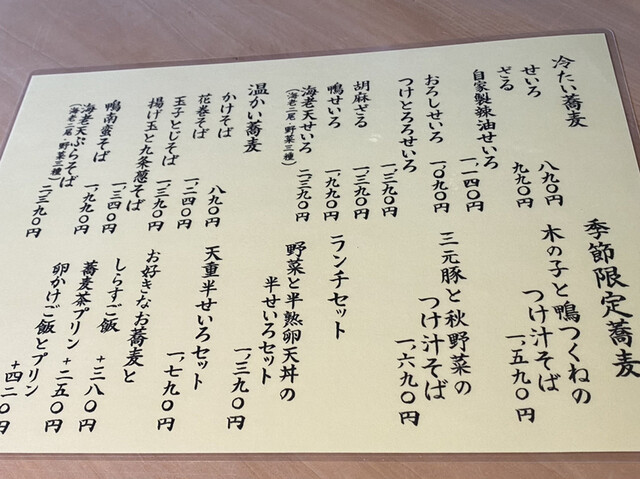 冷たい蕎麦
せいろ 八九〇円
ざる 九九〇円
自家製辣油せいろ 一、一四〇円
おろしせいろ 一、〇九〇円
つけとろろせいろ 一、三九〇円
胡麻ざる 一、三九〇円
鴨せいろ 一、九九〇円
海老天せいろ 二、三九〇円
(海老二尾・野菜三種)
温かい蕎麦
かけそば 八九〇円
花巻そば 一、二四〇円
玉子とじそば 一、三九〇円
揚げ玉と九条葱そば
鴨南蛮そば 一、三四〇円
海老天ぷらそば 一、九九〇円
(海老二尾・野菜三種) 二、三九〇円
季節限定蕎麦
木の子と鴨つくねの
つけ汁そば 一、五九〇円
三元豚と秋野菜の
つけ汁そば 一、六九〇円
ランチセット
野菜と半熟卵天丼の
半せいろセット 一、三九〇円
天重半せいろセット 一、七九〇円
お好きなお蕎麦と
しらすご飯 +三八〇円
蕎麦茶プリン +二五〇円
卵かけご飯とプリン +四二〇円